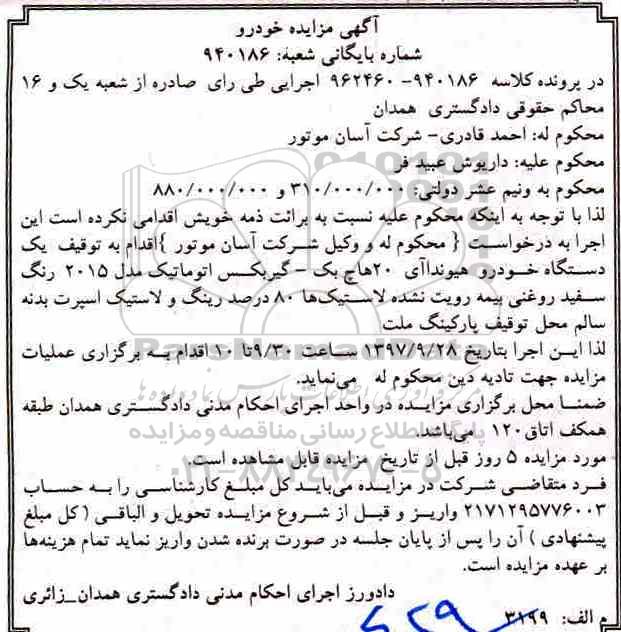 آگهی مزایده خودرو
شماره بایگانی شعبه: ۹۴۰۱۸۶
در پرونده کلاسه ۹۴۰۱۸۶- ۹۶۲۴۶۰ اجرایی طی رای صادره از شعبه یک و ۱۶
محاکم حقوقی دادگستری همدان
محکوم له: احمد قادری- شرکت آسان موتور
محکوم علیه: داریوش عبید فر
محکوم به ونیم عشر دولتی: ۳۱۰/۰۰۰/۰۰۰ و ۸۸۰/۰۰۰/۰۰۰
لذا با توجه به اینکه محکوم علیه نسبت به برائت ذمه خویش اقدامی نکرده است این
اجرا به درخواست { محکوم له و وکیل شرکت آسان موتور }اقدام به توقیف یک
دستگاه خودرو هیوندآآی ۲۰هاچ بک – گیربکس اتوماتیک مدل ۲۰۱۵ رنگ
سفید روغنی بیمه رویت نشده لاستیک‌ها ۸۰ درصد رینگ و لاستیک اسپرت بدنه
سالم محل توقیف پارکینگ ملت
لذا این اجرا بتاریخ ۱۳۹۷/۹/۲۸ ساعت ۹/۳۰تا ۱۰ اقدام به برگزاری عملیات
مزایده جهت تادیه دین محکوم له می‌نماید.
ضمنا محل برگزاری مزایده در واحد اجرای احکام مدنی دادگستری همدان طبقه
همکف اتاق ۱۲۰ می‌باشد.
مورد مزایده ۵ روز قبل از تاریخ مزایده قابل مشاهده است.
فرد متقاضی شرکت در مزایده می‌باید کل مبلغ کارشناسی را به حساب
۲۱۷۱۲۹۵۷۷۶۰۰۳ واریز و قبل از شروع مزایده تحویل و الباقی ( کل مبلغ
پیشنهادی ) آن را پس از پایان جلسه در صورت برنده شدن واریز نماید تمام هزینه‌ها
بر عهده مزایده است.
دادورز اجرای احکام مدنی دادگستری همدان_زائری
م الف: ۳۱۹۹
پایگاه اطلاع رسانی مناقصه و مزایده
۰۲۱-۸۸۳۴۹۶۷۰-۵